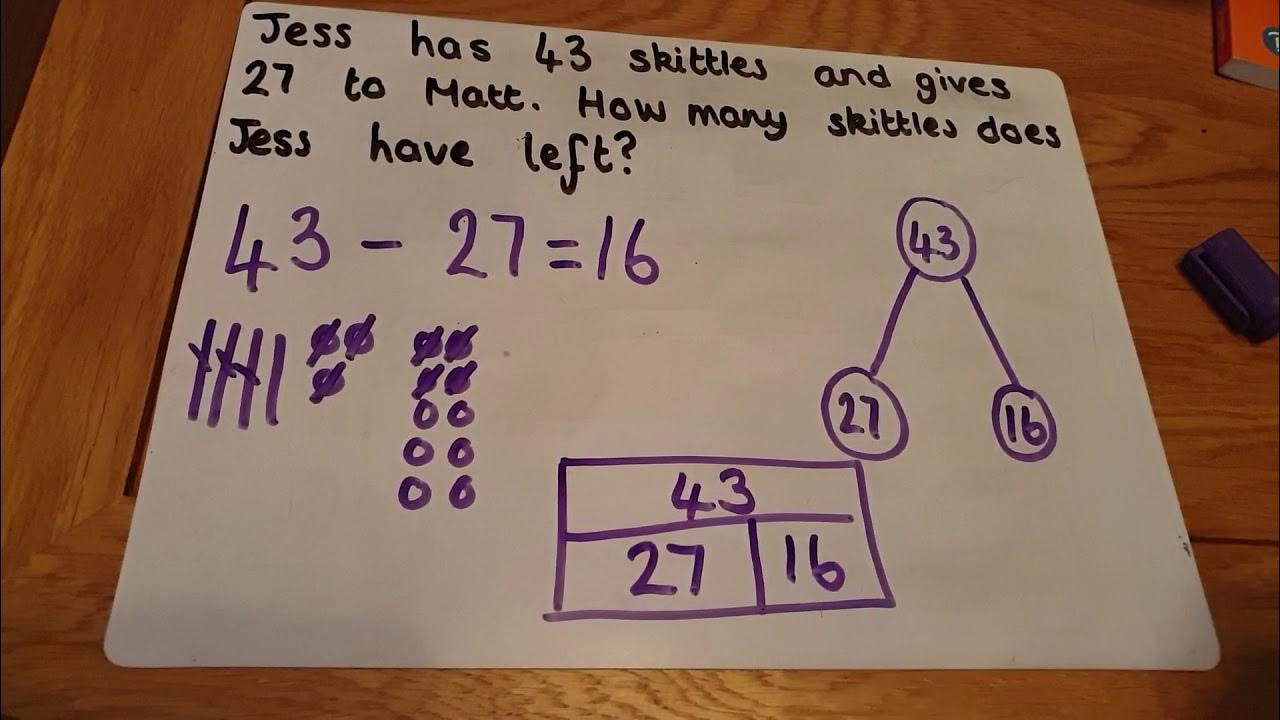 Jess has 43 skittles and gives
27 to Matt. How many skittles does
Jess have left?
43 - 27 = 16
43
27 16
43
27 16